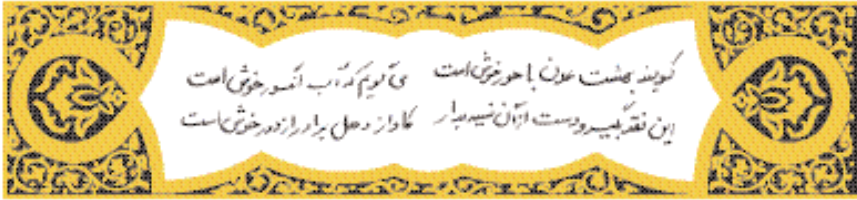 گویند بهشت عدن با حور خوش است می گویم که آب انگور خوش است
این نقد بگیر و دست از آن نسیه بدار کاواز دهل برادر از دور خوش است